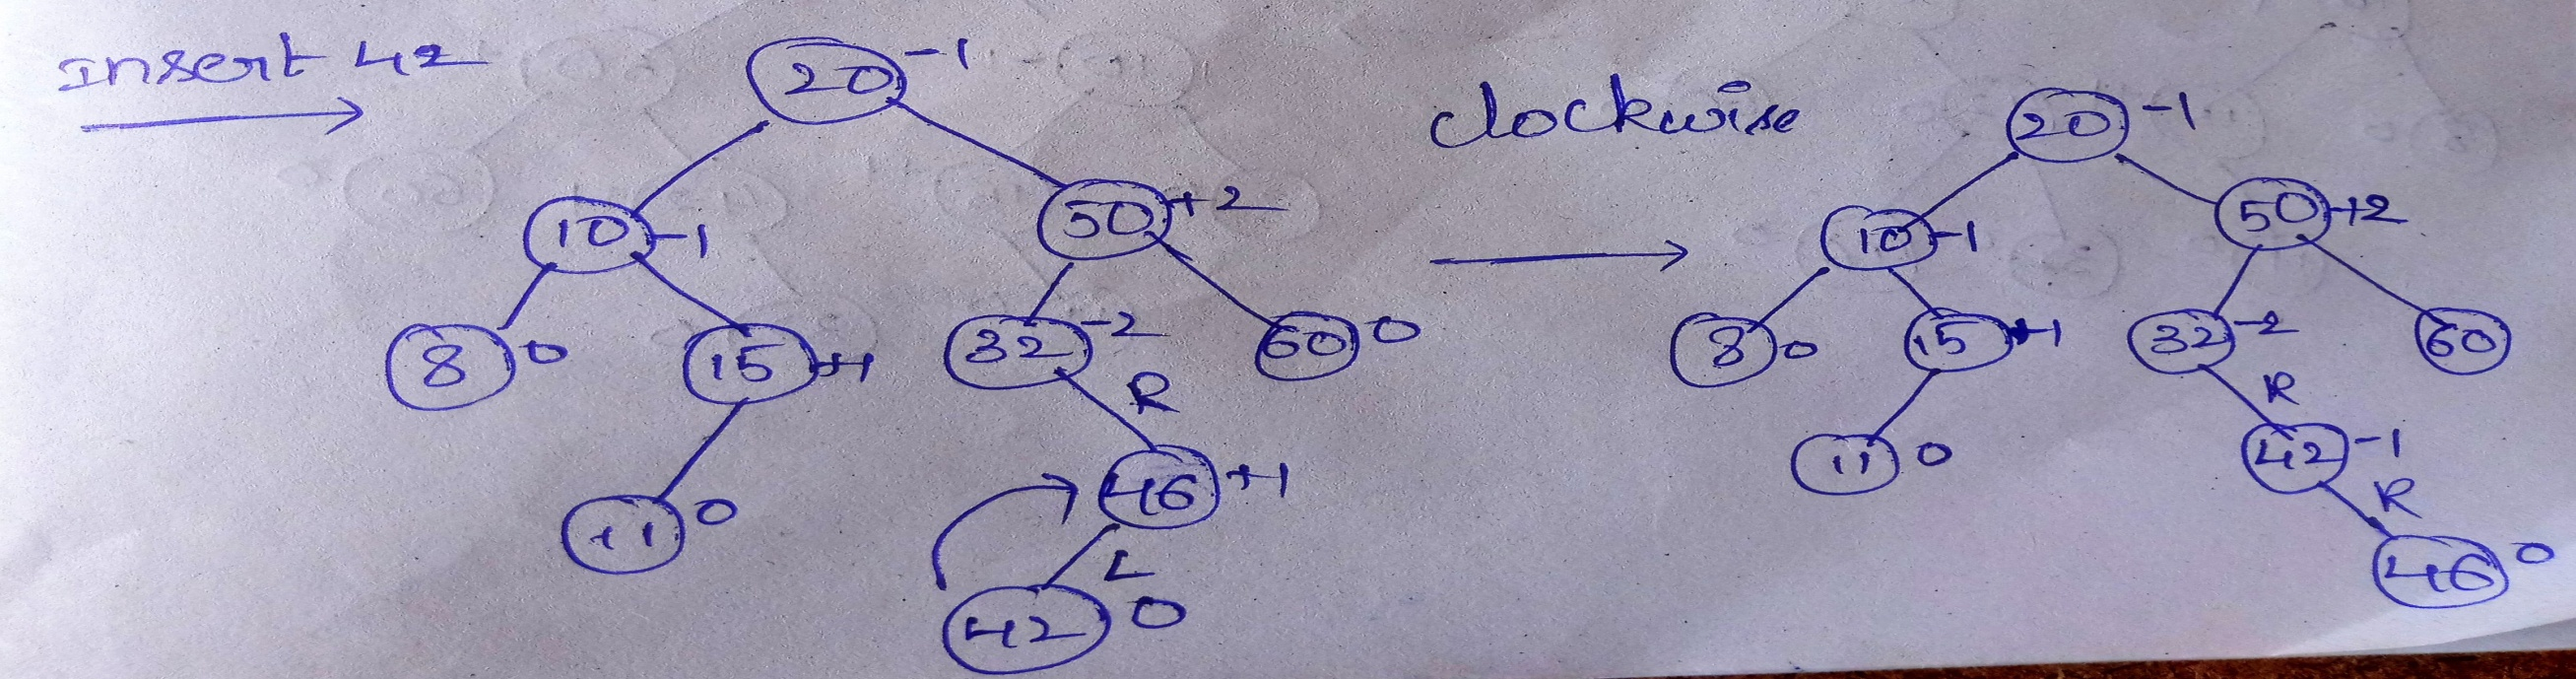 Insert 42
20 -1
10 -1
50 +2
8 0
15 +1
32 -2
60 0
R
11 0
46 +1
L
42 0
clockwise
20 -1
10 -1
50 +2
8 0
15 +1
32 -2
60
R
11 0
42 -1
R
46 0